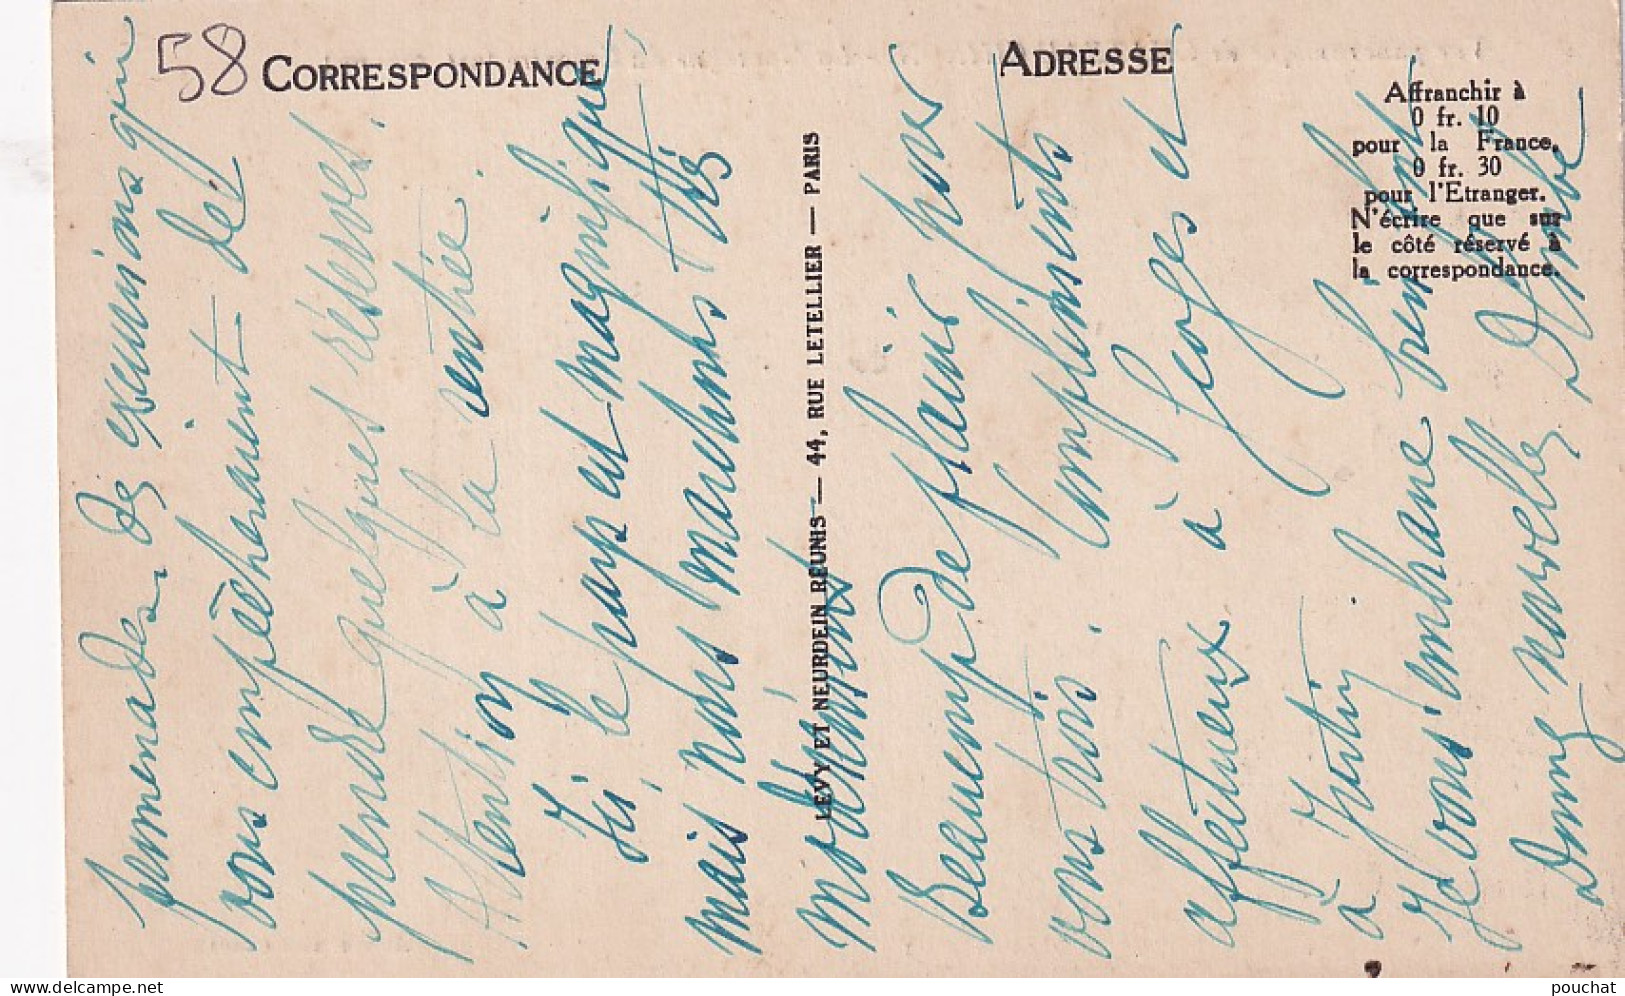 58
CORRESPONDANCE
ADRESSE
Affranchir à
0 fr. 10
pour la France,
0 fr. 30
pour l'Etranger.
N'écrire que sur
le côté réservé à
la correspondance.
LEVY ET NEURDEIN RÉUNIS — 44, RUE LETELLIER — PARIS
promenades des excursions qui
vous empêcheraient de
prendre quelques réserves.
Attention à la rentrée.
Ici, le pays est magnifique
mais nous marchons très
modérément
Beaucoup de plaisir pour
vous trois. Compliments
affectueux à Georges et
à
Je vous embrasse bien fort
nouvelles
pouchat